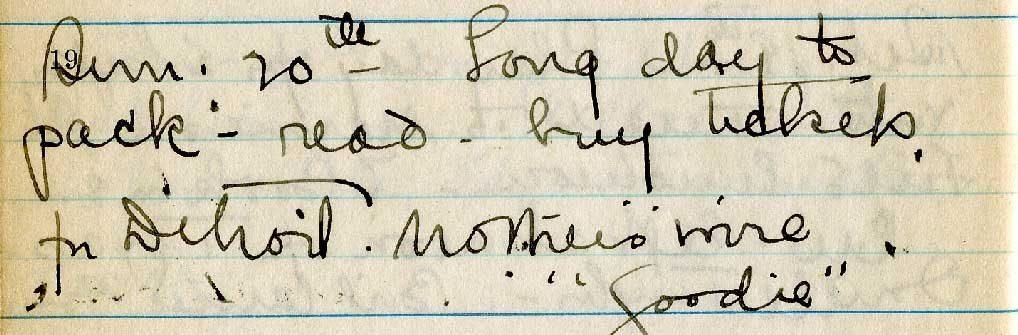 Sun. 20th - Long day to
pack - read - buy tickets,
for Detroit. Mother's wire.
"Goodie"